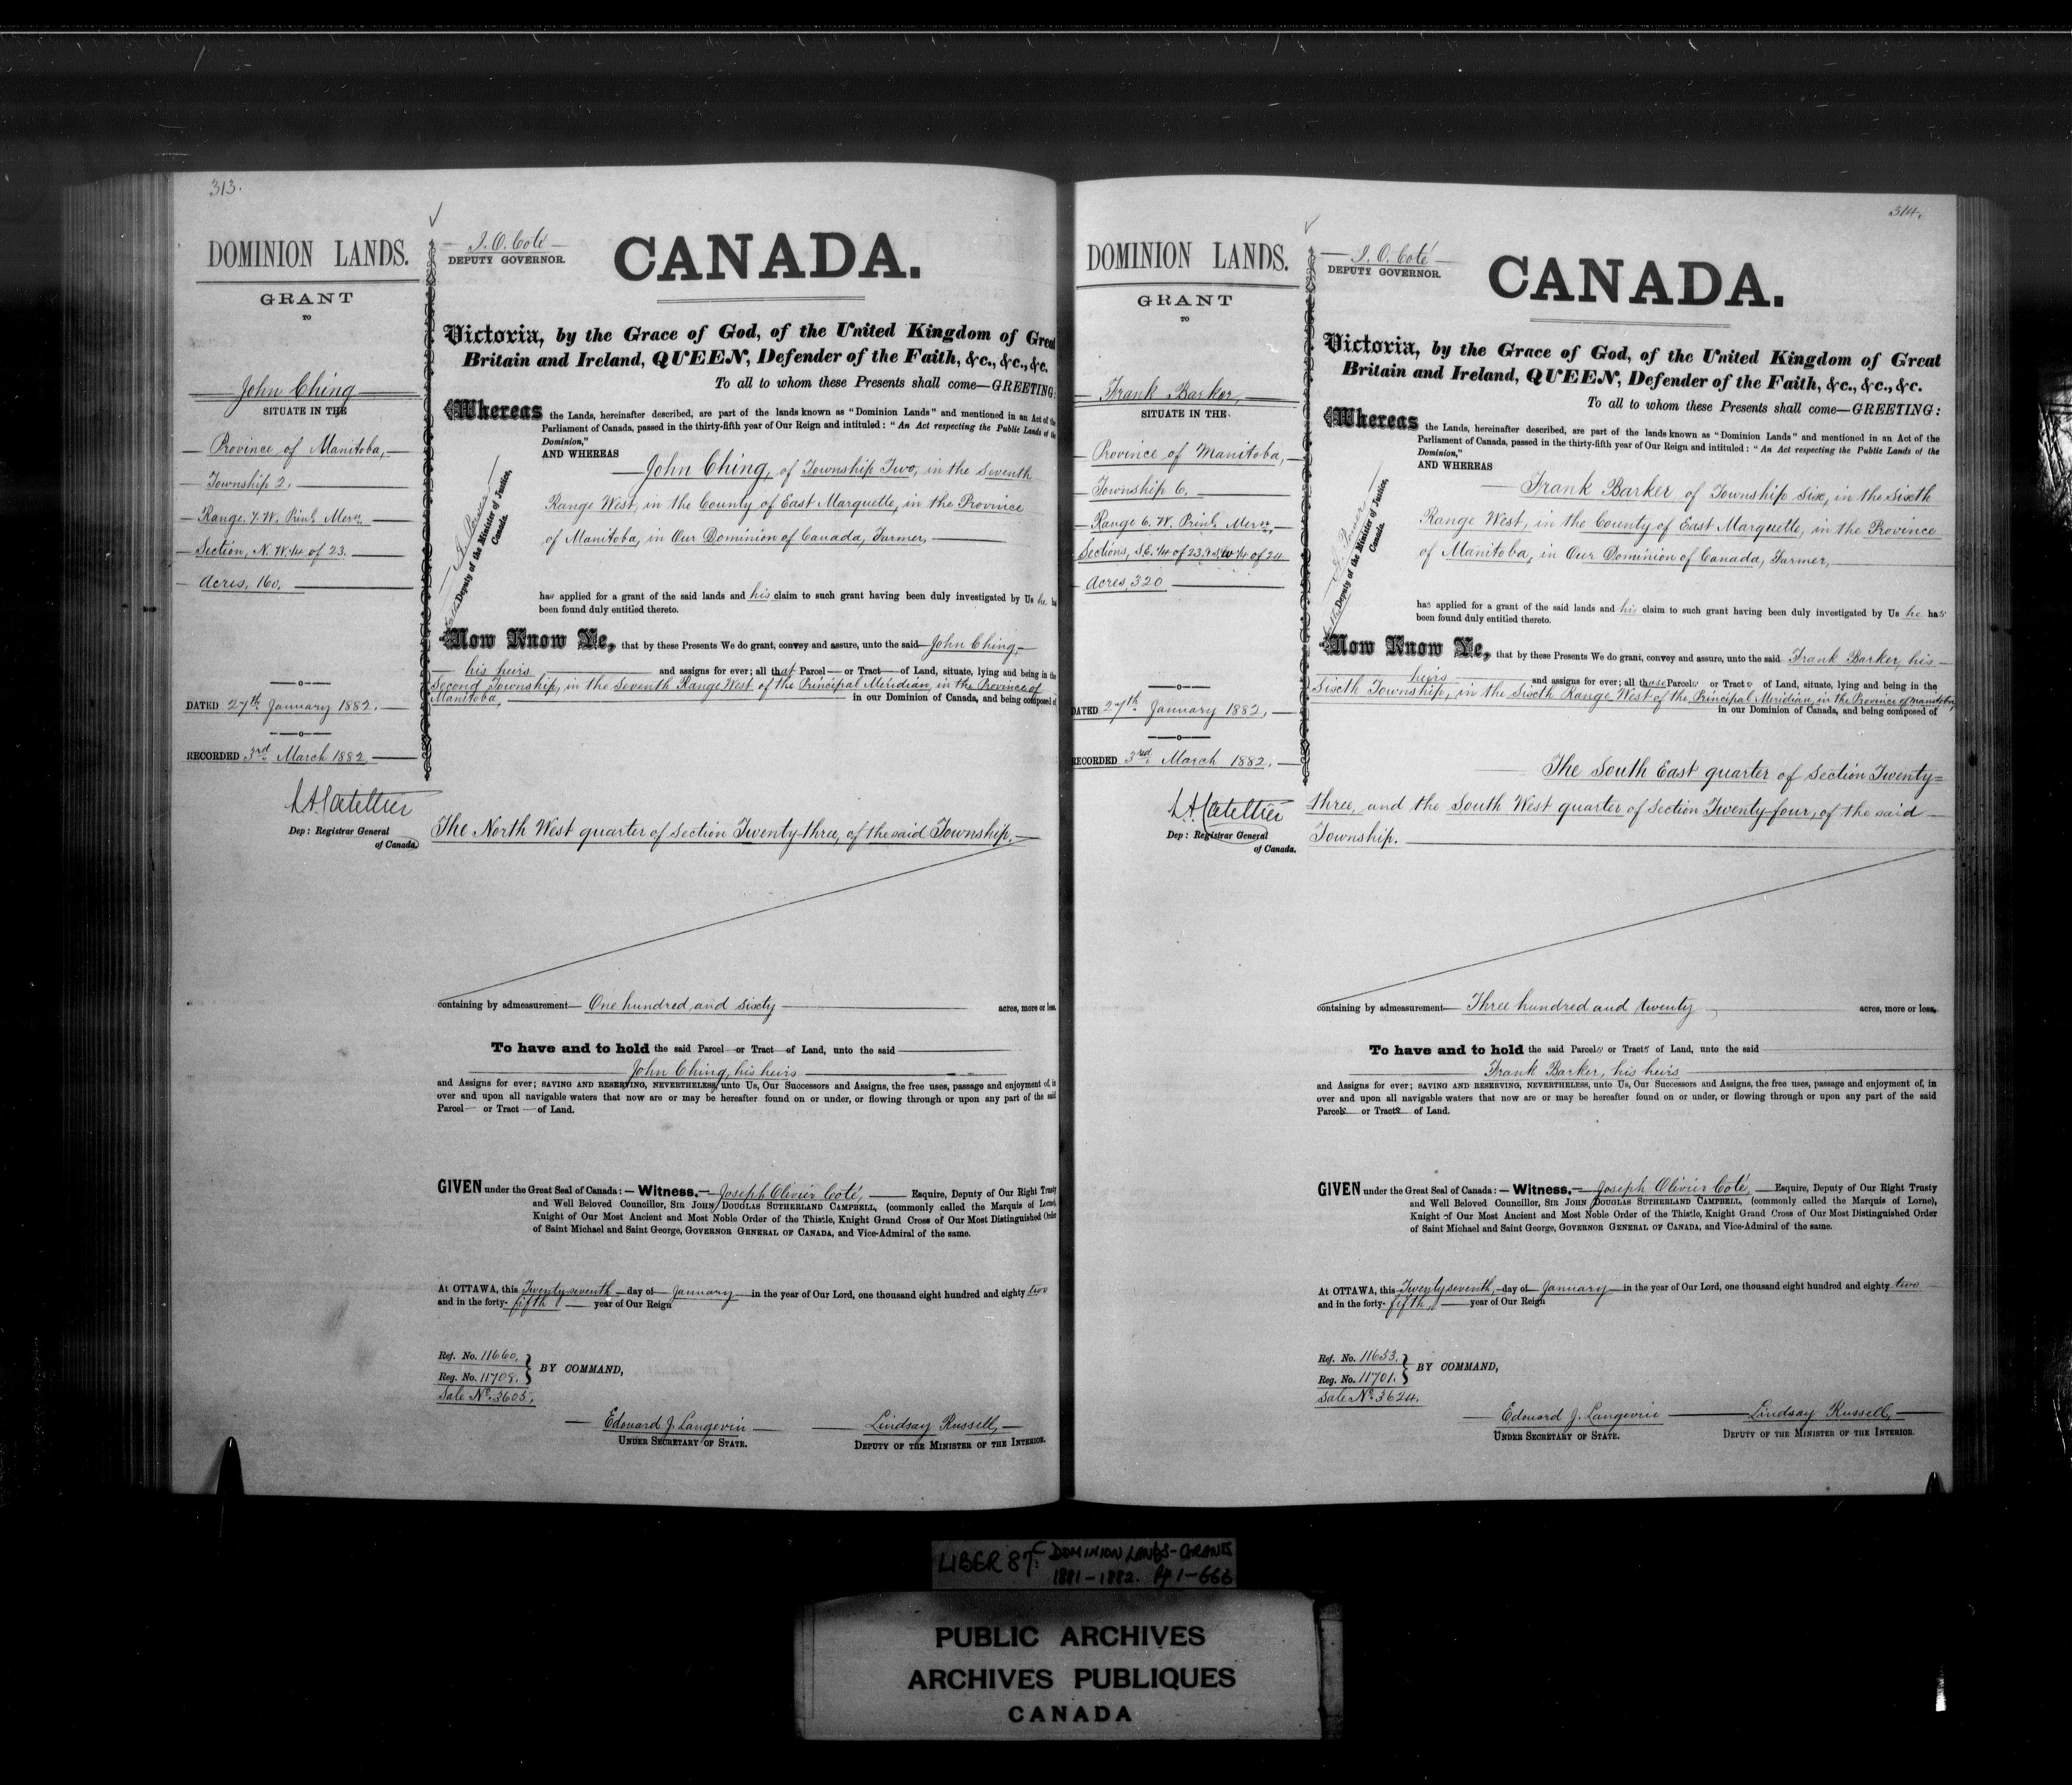 313.
DOMINION LANDS.
GRANT
TO
John Ching
SITUATE IN THE
Province of Manitoba,
Township 2.
Range. 7. W. Prin.l Mer.n
Section, N. W. 1/4 of 23.
Acres, 160.
DATED 27th January 1882.
RECORDED 3rd March 1882
Dep: Registrar General
of Canada.
J. O. Coté
DEPUTY GOVERNOR.
CANADA.
Victoria, by the Grace of God, of the United Kingdom of Great
Britain and Ireland, QUEEN, Defender of the Faith, &c., &c., &c.
To all to whom these Presents shall come—GREETING:
Whereas the Lands, hereinafter described, are part of the lands known as "Dominion Lands" and mentioned in an Act of the
Parliament of Canada, passed in the thirty-fifth year of Our Reign and intituled: "An Act respecting the Public Lands of the
Dominion,"
AND WHEREAS
John Ching, of Township Two, in the Seventh
Range West, in the County of East Marquette, in the Province
of Manitoba, in Our Dominion of Canada, Farmer,
Deputy of the Minister of Justice,
Canada.
has applied for a grant of the said lands and his claim to such grant having been duly investigated by Us he has
been found duly entitled thereto.
Now Know Ye, that by these Presents We do grant, convey and assure, unto the said John Ching,
his heirs and assigns for ever; all that Parcel or Tract of Land, situate, lying and being in the
Second Township, in the Seventh Range West of the Principal Meridian, in the Province of
Manitoba, in our Dominion of Canada, and being composed of
The North West quarter of Section Twenty-three, of the said Township.
containing by admeasurement One hundred and sixty acres, more or less.
To have and to hold the said Parcel or Tract of Land, unto the said
John Ching, his heirs
and Assigns for ever; SAVING AND RESERVING, NEVERTHELESS, unto Us, Our Successors and Assigns, the free uses, passage and enjoyment of, in
over and upon all navigable waters that now are or may be hereafter found on or under, or flowing through or upon any part of the said
Parcel or Tract of Land.
GIVEN under the Great Seal of Canada:—Witness, Joseph Olivier Coté, Esquire, Deputy of Our Right Trusty
and Well Beloved Councillor, SIR JOHN DOUGLAS SUTHERLAND CAMPBELL, (commonly called the Marquis of Lorne),
Knight of Our Most Ancient and Most Noble Order of the Thistle, Knight Grand Cross of Our Most Distinguished Order
of Saint Michael and Saint George, GOVERNOR GENERAL OF CANADA, and Vice-Admiral of the same.
At OTTAWA, this Twenty seventh day of January in the year of Our Lord, one thousand eight hundred and eighty two
and in the forty-fifth year of Our Reign
Ref. No. 11660.
Reg. No. 11708.
Sale No. 3605.
BY COMMAND,
Edouard J. Langevin
UNDER SECRETARY OF STATE.
Lindsay Russell,
DEPUTY OF THE MINISTER OF THE INTERIOR.
314.
DOMINION LANDS.
GRANT
TO
Frank Barker,
SITUATE IN THE
Province of Manitoba,
Township 6.
Range 6. W. Prin.l Mer.n
Sections, S.E. 1/4 of 23, & S.W 1/4 of 24
Acres, 320
DATED 27th January 1882,
RECORDED 3rd March 1882.
Dep: Registrar General
of Canada.
J. O. Coté
DEPUTY GOVERNOR.
CANADA.
Victoria, by the Grace of God, of the United Kingdom of Great
Britain and Ireland, QUEEN, Defender of the Faith, &c., &c., &c.
To all to whom these Presents shall come—GREETING:
Whereas the Lands, hereinafter described, are part of the lands known as "Dominion Lands" and mentioned in an Act of the
Parliament of Canada, passed in the thirty-fifth year of Our Reign and intituled: "An Act respecting the Public Lands of the
Dominion,"
AND WHEREAS
Frank Barker of Township Six, in the Sixth
Range West, in the County of East Marquette, in the Province
of Manitoba, in Our Dominion of Canada, Farmer,
Deputy of the Minister of Justice,
Canada.
has applied for a grant of the said lands and his claim to such grant having been duly investigated by Us he has
been found duly entitled thereto.
Now Know Ye, that by these Presents We do grant, convey and assure, unto the said Frank Barker, his
heirs and assigns for ever; all those Parcels or Tracts of Land, situate, lying and being in the
Sixth Township, in the Sixth Range West of the Principal Meridian, in the Province of Manitoba,
in our Dominion of Canada, and being composed of
The South East quarter of Section Twenty=
three, and the South West quarter of Section Twenty-four, of the said
Township.
containing by admeasurement Three hundred and twenty acres, more or less.
To have and to hold the said Parcels or Tracts of Land, unto the said
Frank Barker, his heirs
and Assigns for ever; SAVING AND RESERVING, NEVERTHELESS, unto Us, Our Successors and Assigns, the free uses, passage and enjoyment of, in
over and upon all navigable waters that now are or may be hereafter found on or under, or flowing through or upon any part of the said
Parcels or Tracts of Land.
GIVEN under the Great Seal of Canada:—Witness, Joseph Olivier Coté, Esquire, Deputy of Our Right Trusty
and Well Beloved Councillor, SIR JOHN DOUGLAS SUTHERLAND CAMPBELL, (commonly called the Marquis of Lorne),
Knight of Our Most Ancient and Most Noble Order of the Thistle, Knight Grand Cross of Our Most Distinguished Order
of Saint Michael and Saint George, GOVERNOR GENERAL OF CANADA, and Vice-Admiral of the same.
At OTTAWA, this Twenty seventh, day of January in the year of Our Lord, one thousand eight hundred and eighty two
and in the forty-fifth, year of Our Reign
Ref. No. 11653.
Reg. No. 11701.
Sale No. 3624.
BY COMMAND,
Edouard J. Langevin
UNDER SECRETARY OF STATE.
Lindsay Russell,
DEPUTY OF THE MINISTER OF THE INTERIOR.
LIBER 87: DOMINION LANDS-GRANTS
1881-1882. Pp 1-666
PUBLIC ARCHIVES
ARCHIVES PUBLIQUES
CANADA